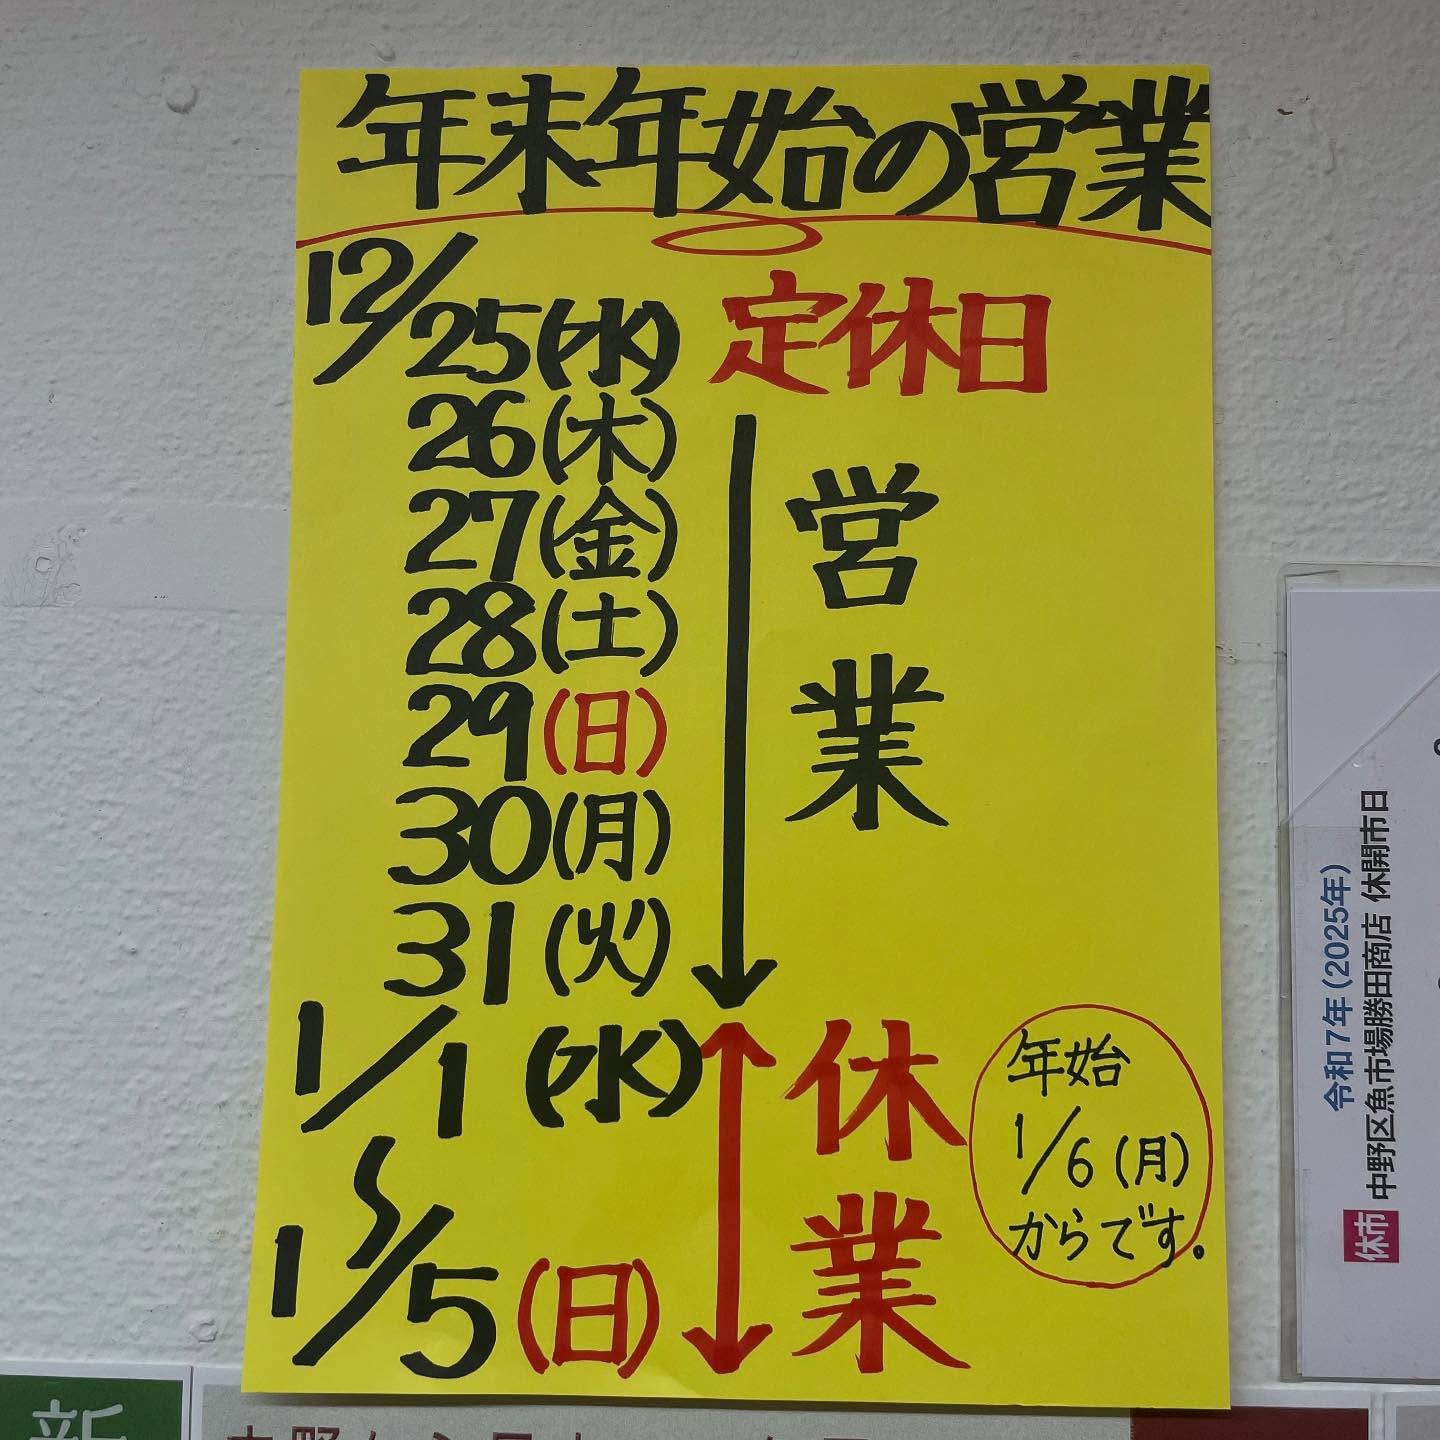 年末年始の営業
12/25(水) 定休日
26(木)
27(金)
28(土)
29(日)
30(月)
31(火)
営業
1/1(水)
〜
1/5(日)
休業
年始
1/6(月)
からです。
令和7年(2025年)
中野区魚市場勝田商店 休開市日
休市
新